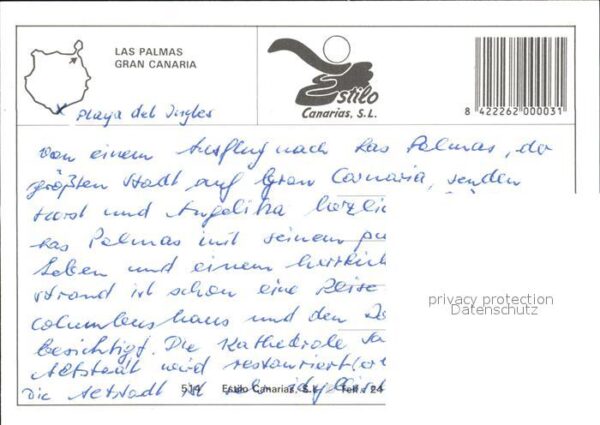 LAS PALMAS
GRAN CANARIA
Estilo
Canarias, S.L.
8 422262 000031
x Playa del Ingles
von einem Ausflug nach Las Palmas, der
größten Stadt auf Gran Canaria, senden
Horst und Angelika herzlic
Las Palmas mit seinem pu
Leben und einem herrlich
strand ist schon eine Reise
Columbushaus und den
besichtigt. Die Kathedrale
Altstadt wird restauriert
Die Altstadt ist sehr idyllisch
514 Estilo Canarias, S.L. Telf.: 24
privacy protection
Datenschutz